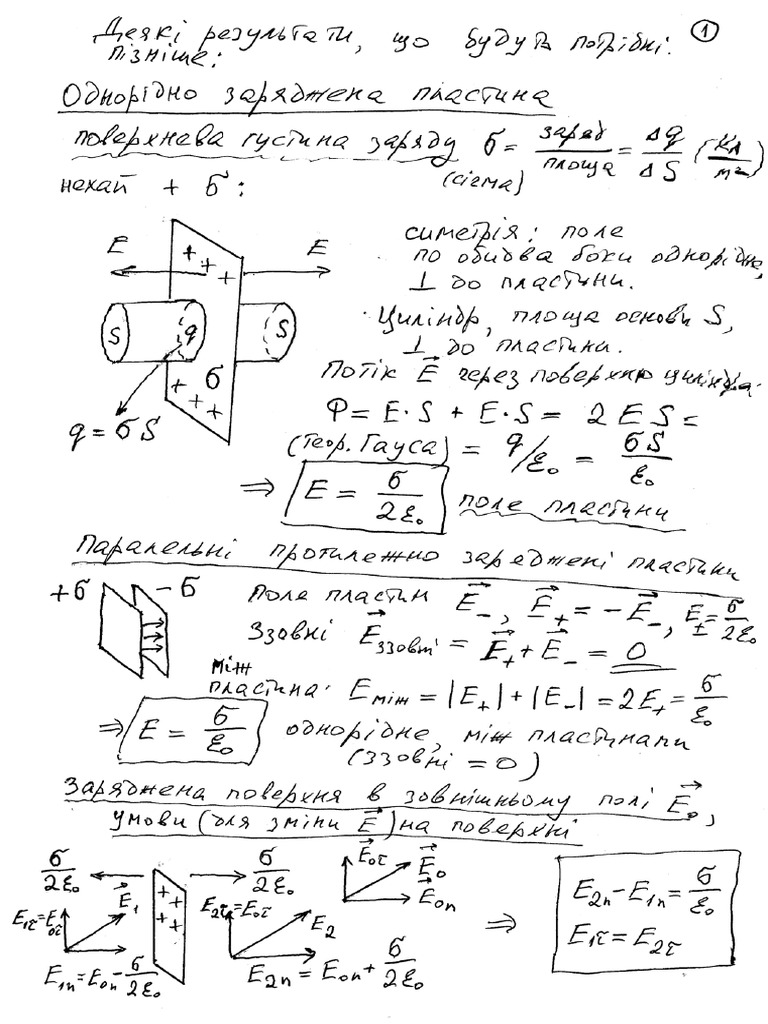 Деякі результати, що будуть потрібні ①
пізніше:
Однорідно заряджена пластина
поверхнева густина заряду σ = заряд/площа = Δq/ΔS (Кл/м²)
(сігма)
нехай + σ:
симетрія: поле
по обидва боки однорідне,
⊥ до пластини.
E E
+ + +
Циліндр, площа основи S,
⊥ до пластини.
S q S
σ
+ + + +
Потік E⃗ через поверхню циліндра:
q = σS
Φ = E·S + E·S = 2ES =
(теор. Гауса) = q/ε₀ = σS/ε₀
⇒ E = σ/2ε₀ поле пластини
Паралельні протилежно заряджені пластини
+σ -σ
Поле пластин E⃗₋, E⃗₊ = -E⃗₋, E± = σ/2ε₀
Ззовні E⃗ззовні = E⃗₊ + E⃗₋ = 0
між
пластина: Eміж = |E₊| + |E₋| = 2E₊ = σ/ε₀
⇒ E = σ/ε₀ однорідне, між пластинами
(ззовні = 0)
Заряджена поверхня в зовнішньому полі E⃗₀,
умови (для зміни E⃗) на поверхні
σ/2ε₀ σ/2ε₀
E⃗₀τ E⃗₀ E⃗₀n
E₁τ = E₀τ E⃗₁
+ + + +
E₂τ = E₀τ E₂
E₁n = E₀n - σ/2ε₀
E₂n = E₀n + σ/2ε₀
⇒ E₂n - E₁n = σ/ε₀
E₁τ = E₂τ